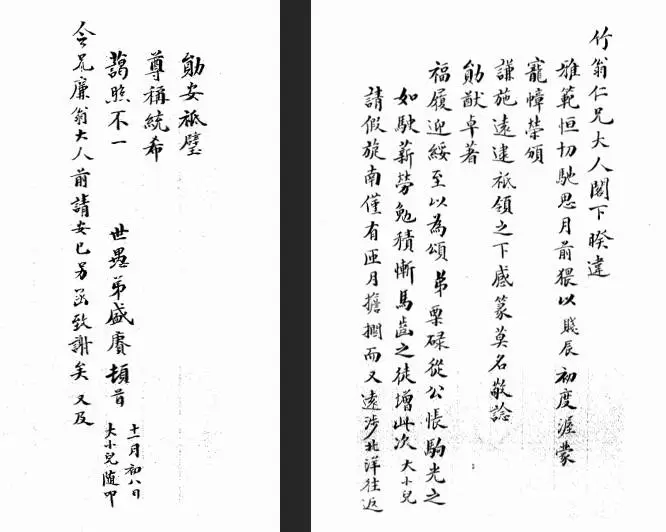 竹翁仁兄大人閣下睽違
雅範恒切馳思月前猥以賤辰初度渥蒙
寵幛榮頒
謙施遠逮祇領之下感篆莫名敬諗
勛猷卓著
福履迎綏至以為頌弟栗碌從公悵駒光之
如駛薪勞勉積慚馬齒之徒增此次大小兒
請假旋南僅有匝月擔擱而又遠涉北洋往返
勛安祗璧
尊稱統希
藹照不一
世愚弟盛賡頓首
十一月初八日
大小兒随叩
令兄廉翁大人前請安已另函致謝矣又及